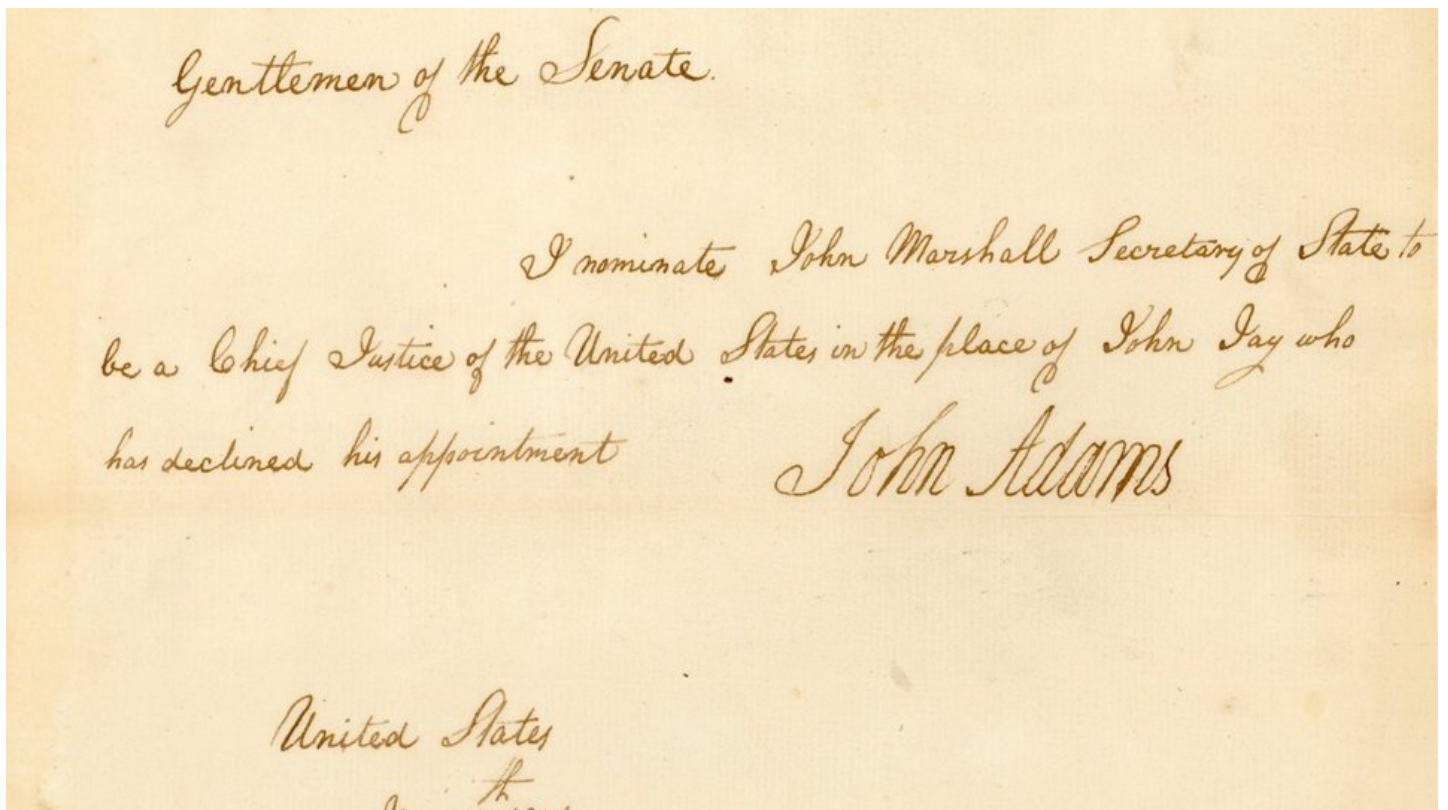 Gentlemen of the Senate.
I nominate John Marshall Secretary of State to
be a Chief Justice of the United States in the place of John Jay who
has declined his appointment
John Adams
United States
th